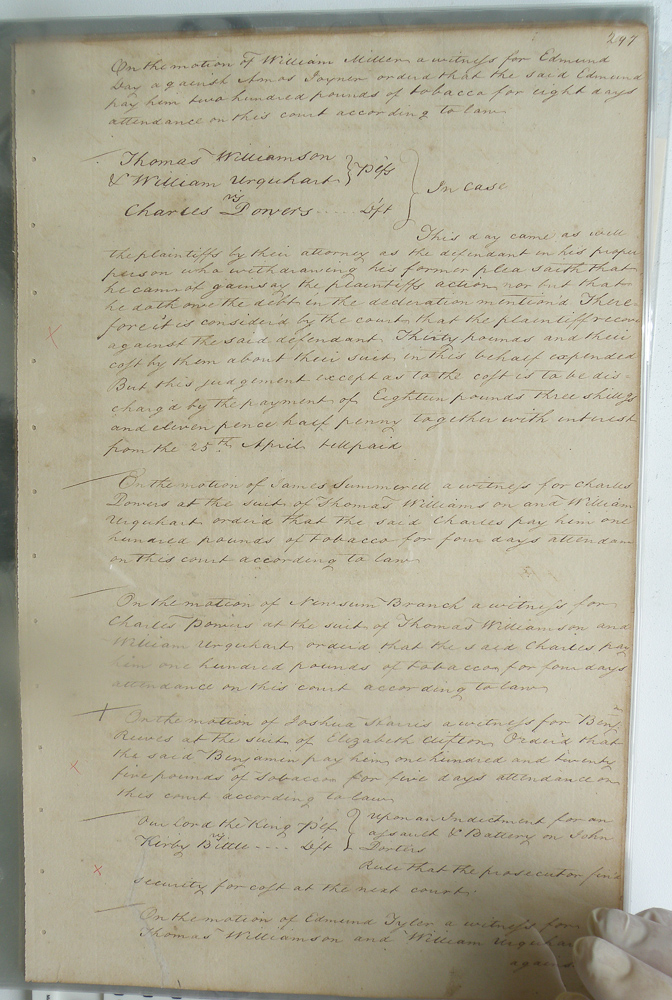 247
On the motion of William Miller a witness for Edmund
Day against Amos Joyner orderd that the said Edmund
pay him two hundred pounds of tobacco for eight days
attendance on this court according to law
Thomas Williamson
& William Urquhart } Plfs
vs
Charles Powers ..... Dft } In Case
This day came as well
the plaintiffs by their attorney as the defendant in his proper
person who withdrawing his former plea saith that
he cannot gainsay the plaintiffs action nor but that
he doth owe the debt in the declaration mention'd There-
fore it is consider'd by the court that the plaintiff recover
against the said defendant Thirty pounds and their
cost by them about their suit in this behalf expended
But this judgement except as to the cost is to be dis-
charg'd by the payment of Eighteen pounds three shillgs
and eleven pence half penny together with interest
from the 25th April till paid
On the motion of James Summerell a witness for Charles
Powers at the suit of Thomas Williamson and William
Urquhart order'd that the said Charles pay him one
hundred pounds of tobacco for four days attendan
on this court according to law
On the motion of Newsum Branch a witness for
Charles Powers at the suit of Thomas Williamson and
William Urquhart order'd that the said Charles pay
him one hundred pounds of tobacco for four days
attendance on this court according to law
On the motion of Joshua Harris a witness for Benj
Reeves at the suit of Elizabeth Clifton Order'd that
the said Benjamin pay him one hundred and twenty
five pounds of tobacco for five days attendance on
this court according to law
Our Lord the King Plf } Upon an Indictment for an
vs assault & Battery on John
Kirby Bittle .... Dft
Rule that the prosecutor find
security for cost at the next court
On the motion of Edmund Tyler a witness for
Thomas Williamson and William Urquhar
against